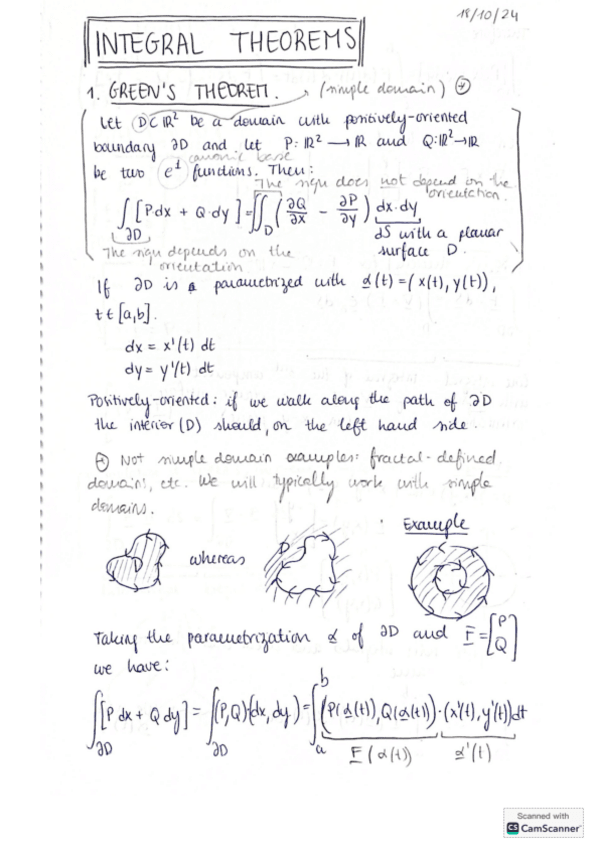 18/10/24
INTEGRAL THEOREMS
1. GREEN'S THEOREM. → (simple domain) ⊛
Let D⊂ℝ² be a domain with positively-oriented
boundary ∂D and let P: ℝ² → ℝ and Q: ℝ² → ℝ
canonic base
be two e¹ functions. Then:
The sign does not depend on the
orientation.
∫∂D [Pdx + Q·dy] = ∬D (∂Q/∂x − ∂P/∂y) dx·dy
dS with a planar
surface D.
The sign depends on the
orientation
If ∂D is a parametrized with α(t)=(x(t), y(t)),
t∈[a,b].
dx = x'(t) dt
dy = y'(t) dt
Positively-oriented: if we walk along the path of ∂D
the interior (D) should, on the left hand side.
⊛ Not simple domain examples: fractal-defined
domains, etc. We will typically work with simple
domains.
Example
D whereas D
Taking the parametrization α of ∂D and F=[P Q]
we have:
∫∂D [P dx + Q dy] = ∫∂D (P,Q)·(dx, dy) = ∫a b (P(α(t)), Q(α(t)))·(x'(t), y'(t))dt
F(α(t)) α'(t)
Scanned with
CS CamScanner